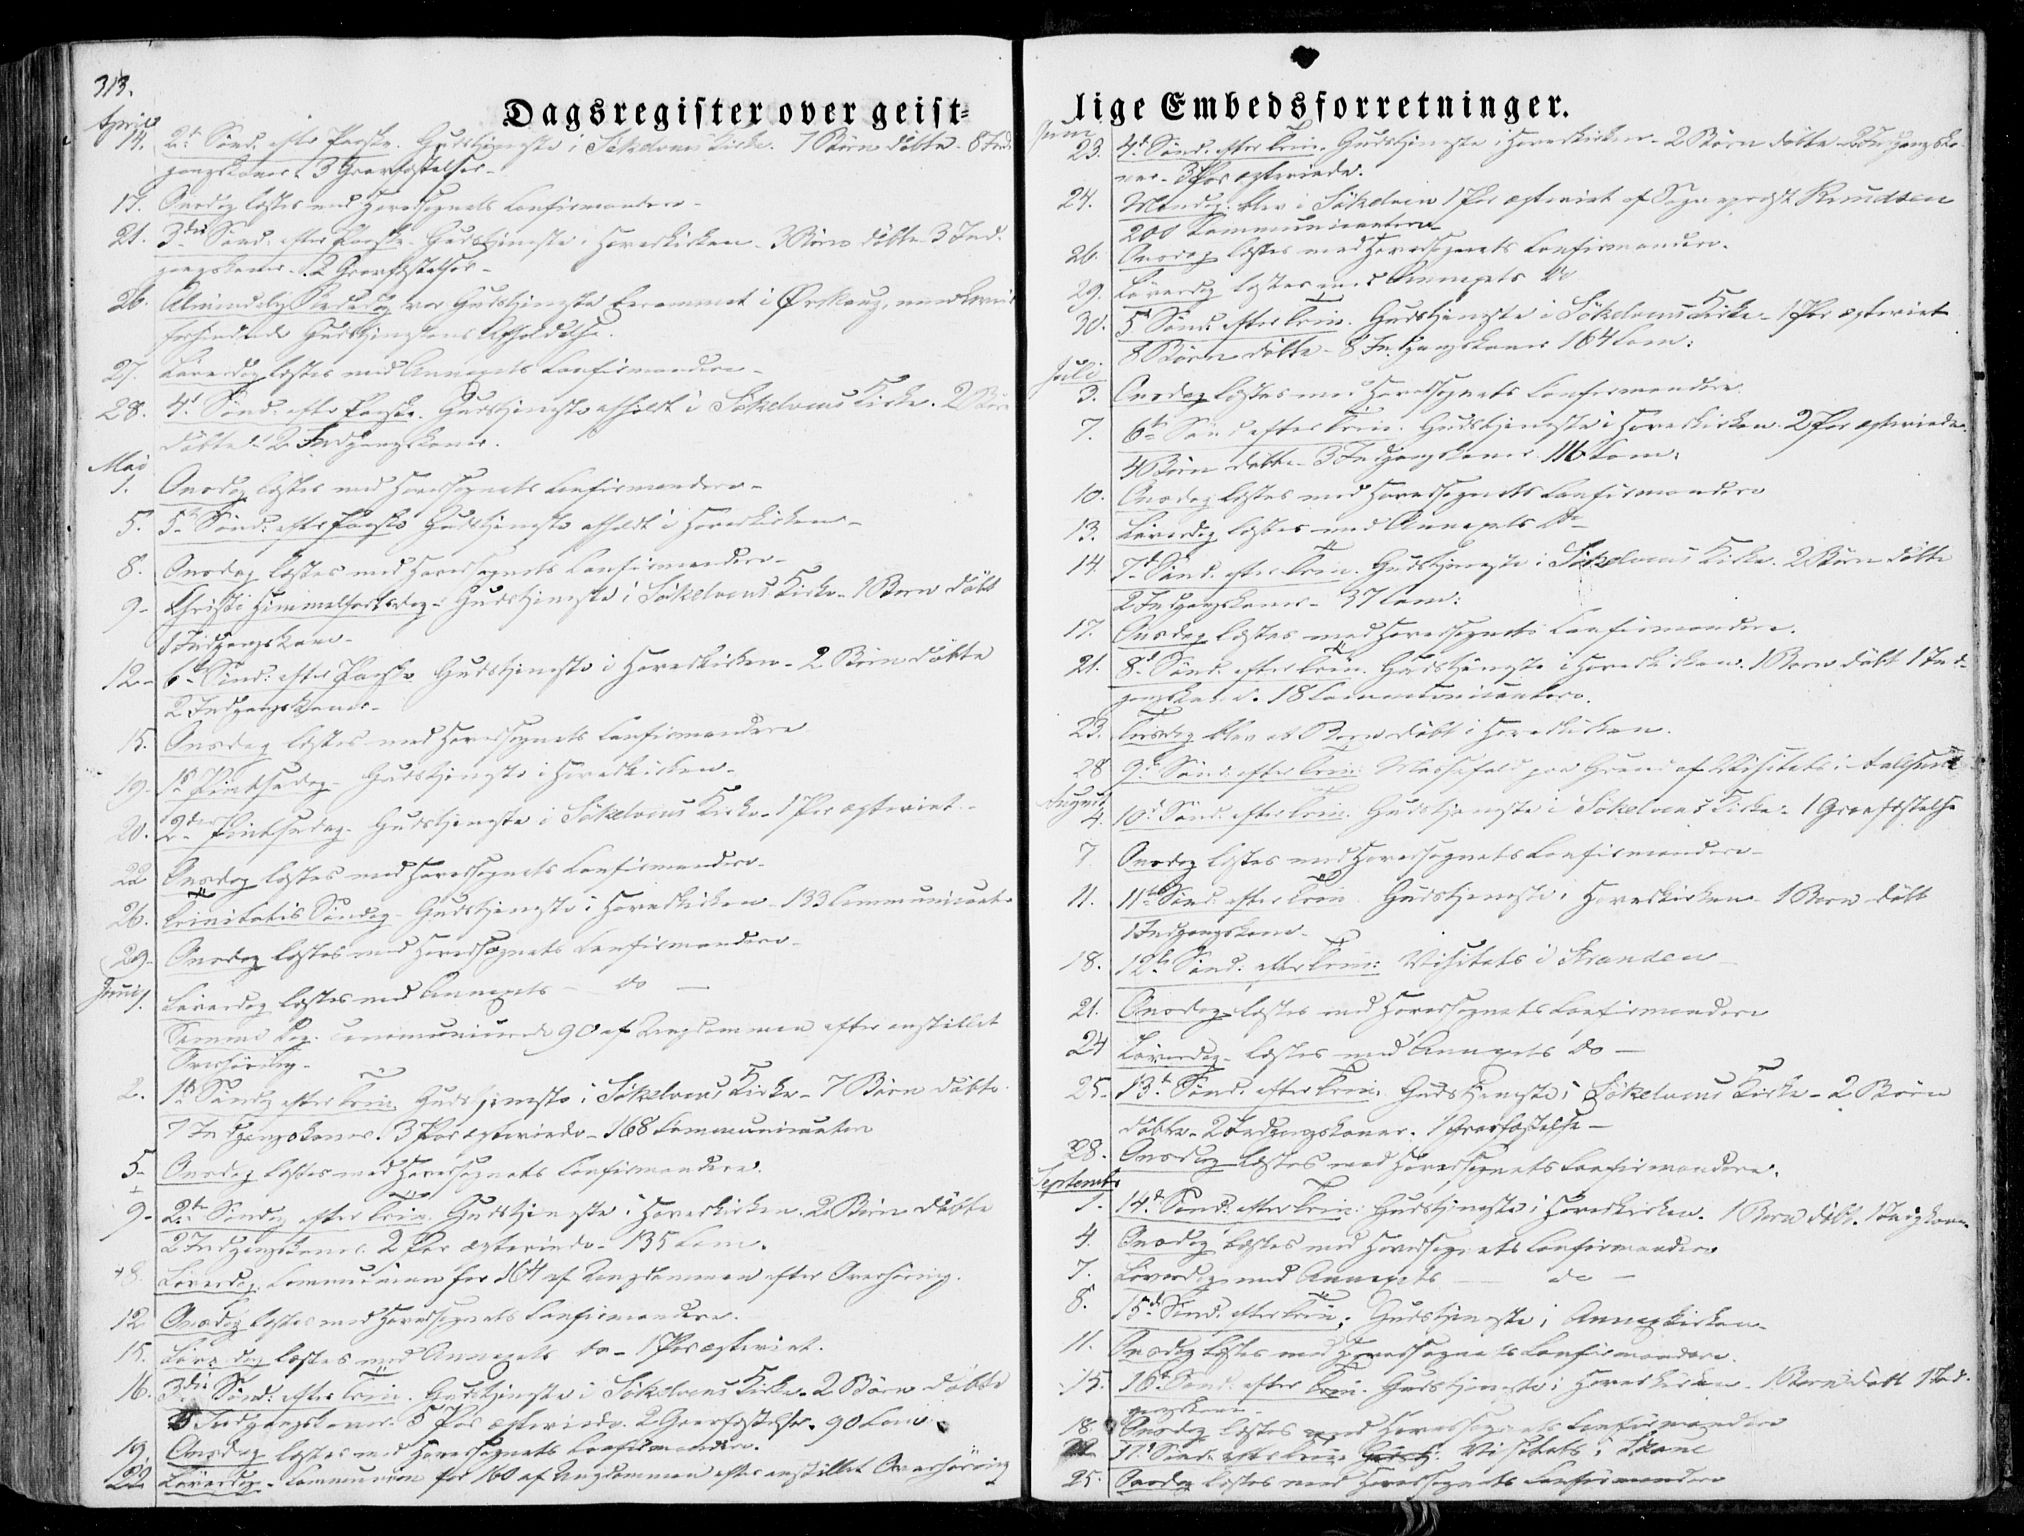 313.
Dagsregister over geist-
April
14. 2d Sönd. efter Paaske. Gudstjeneste i Sökelvens Kirke. 7 Børn døbte. 8 Ind-
gangskoner. 3 Gravfæstelser.
17. Onsdag læstes med Hovedsognets Confirmandere.
21. 3die Sönd. efter Paaske. Gudstjeneste i Hovedkirken. 3 Børn døbte 3 Ind-
gangskoner. 2 Gravfæstelser.
26. Almindelig Bededag var Gudstjeneste berammet i Ørskoug, men Veiret
forhindrede Gudstjenestens Afholdelse.
27. Løverdag læstes med Annexets Confirmandere.
28. 4d Sönd. efter Paaske. Gudstjeneste afholdt i Sökelvens Kirke. 2 Børn
døbte. 2 Indgangskoner.
Mai
1. Onsdag læstes med Hovedsognets Confirmandere.
5. 5te Sönd. efter Paaske Gudstjeneste afholdt i Hovedkirken.
8. Onsdag læstes med Hovedsognets Confirmandere.
9. Christi Himmelfartsdag. Gudstjeneste i Sökelvens Kirke. 1 Barn døbt
1 Indgangskone.
12. 6te Sönd. efter Paaske. Gudstjeneste i Hovedkirken. 2 Børn døbte
2 Indgangskoner.
15. Onsdag læstes med Hovedsognets Confirmandere
19. 1ste Pintsedag. Gudstjeneste i Hovedkirken.
20. 2den Pintsedag. Gudstjeneste i Sökelvens Kirke. 1 Par ægteviet.
22 Onsdag læstes med Hovedsognets Confirmandere.
26. Trinitatis Söndag. Gudstjeneste i Hovedkirken. 133 Communicanter
29. Onsdag læstes med Hovedsognets Confirmandere.
Juni
1. Løverdag læstes med Annexets — do —
Samme Dag communicerede 90 af Ungdommen efter anstillet
Overhøring.
2. 1ste Söndag efter Trin. Gudstjeneste i Sökelvens Kirke. 7 Børn døbte
7 Indgangskoner. 3 Par ægteviede. 168 Communicanter
5. Onsdag læstes med Hovedsognets Confirmandere.
9. 2den Söndag efter Trin. Gudstjeneste i Hovedkirken. 2 Børn døbte
2 Indgangskoner. 2 Par ægteviede. 135 Com.
8. Løverdag. Communion for 164 af Ungdommen efter Overhøring.
12 Onsdag læstes med Hovedsognets Confirmandere.
15. Løverdag læstes med Annexets do. 1 Par ægteviet.
16. 3die Sönd. efter Trin. Gudstjeneste i Sökelvens Kirke. 2 Børn døbte
Indgangskoner. 5 Par ægteviede. 2 Gravfæstelser. 90 Com.
19. Onsdag læstes med Hovedsognets Confirmandere.
22 Løverdag. Communion for 160 af Ungdommen efter anstillet Overhøring
lige Embedsforretninger.
Juni
23. 4d Sönd. efter Trin. Gudstjeneste i Hovedkirken. 2 Børn døbte. 2 Indgangsko-
ner. 3 Par ægteviede.
24. Mandag blev i Sökelven 1 Par ægteviet af Sogneprest Knudtzen
200 Communicantere
26. Onsdag læstes med Hovedsognets Confirmandere.
29. Løverdag læstes med Annexets do
30. 5te Sönd. efter Trin. Gudstjeneste i Sökelvens Kirke. 1 Par ægteviet
8 Børn døbte. 8 Indgangskoner 164 Com:
Juli
3. Onsdag læstes med Hovedsognets Confirmandere.
7. 6te Sönd. efter Trin. Gudstjeneste i Hovedkirken. 2 Par ægteviede.
4 Børn døbte. 3 Indgangskoner 116 Com:
10. Onsdag læstes med Hovedsognets Confirmandere
13. Løverdag læstes med Annexets do
14. 7d Sönd. efter Trin. Gudstjeneste i Sökelvens Kirke. 2 Børn døbte
2 Indgangskoner. 37 Com:
17. Onsdag læstes med Hovedsognets Confirmandere.
21. 8d Sönd. efter Trin. Gudstjeneste i Hovedkirken. 1 Barn døbt 1 Ind-
gangskone. 18 Communicantere.
23. Tirsdag blev et Barn døbt i Hovedkirken.
28 9d Sönd. efter Trin: Messefald paa Grund af Visitats i
August
4. 10d Sönd. efter Trin. Gudstjeneste i Sökelvens Kirke. 1 Gravfæstelse
7. Onsdag læstes med Hovedsognets Confirmandere.
11. 11te Sönd. efter Trin. Gudstjeneste i Hovedkirken. 1 Barn døbt
1 Indgangskone.
18. 12te Sönd. efter Trin: Visitats i Stranden
21. Onsdag læstes med Hovedsognets Confirmandere
24 Løverdag. læstes med Annexets do —
25. 13te Sönd. efter Trin. Gudstjeneste i Sökelvens Kirke. 2 Børn
døbte. 2 Indgangskoner. 1 Gravfæstelse —
28. Onsdag læstes med Hovedsognets Confirmandere.
Septembr
1. 14de Sönd. efter Trin. Gudstjeneste i Hovedkirken. 1 Barn døbt. 1 Indgkone
4. Onsdag læstes med Hovedsognets Confirmandere
7. Løverdag med Annexets — do —
8. 15de Sönd. efter Trin: Gudstjeneste i Annexkirken.
11. Onsdag læstes med Hovedsognets Confirmandere.
15. 16d Sönd. efter Trin. Gudstjeneste i Hovedkirken. 1 Barn døbt 1 Ind-
gangskone.
18. Onsdag læstes med Hovedsognets Confirmandere
22 17d Sönd. efter Trin. Visitats i
25 Onsdag læstes med Hovedsognets Confirmandere